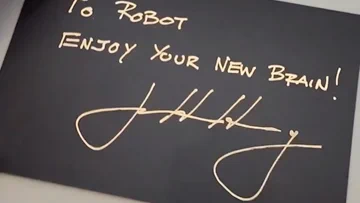 To Robot
Enjoy Your New Brain!